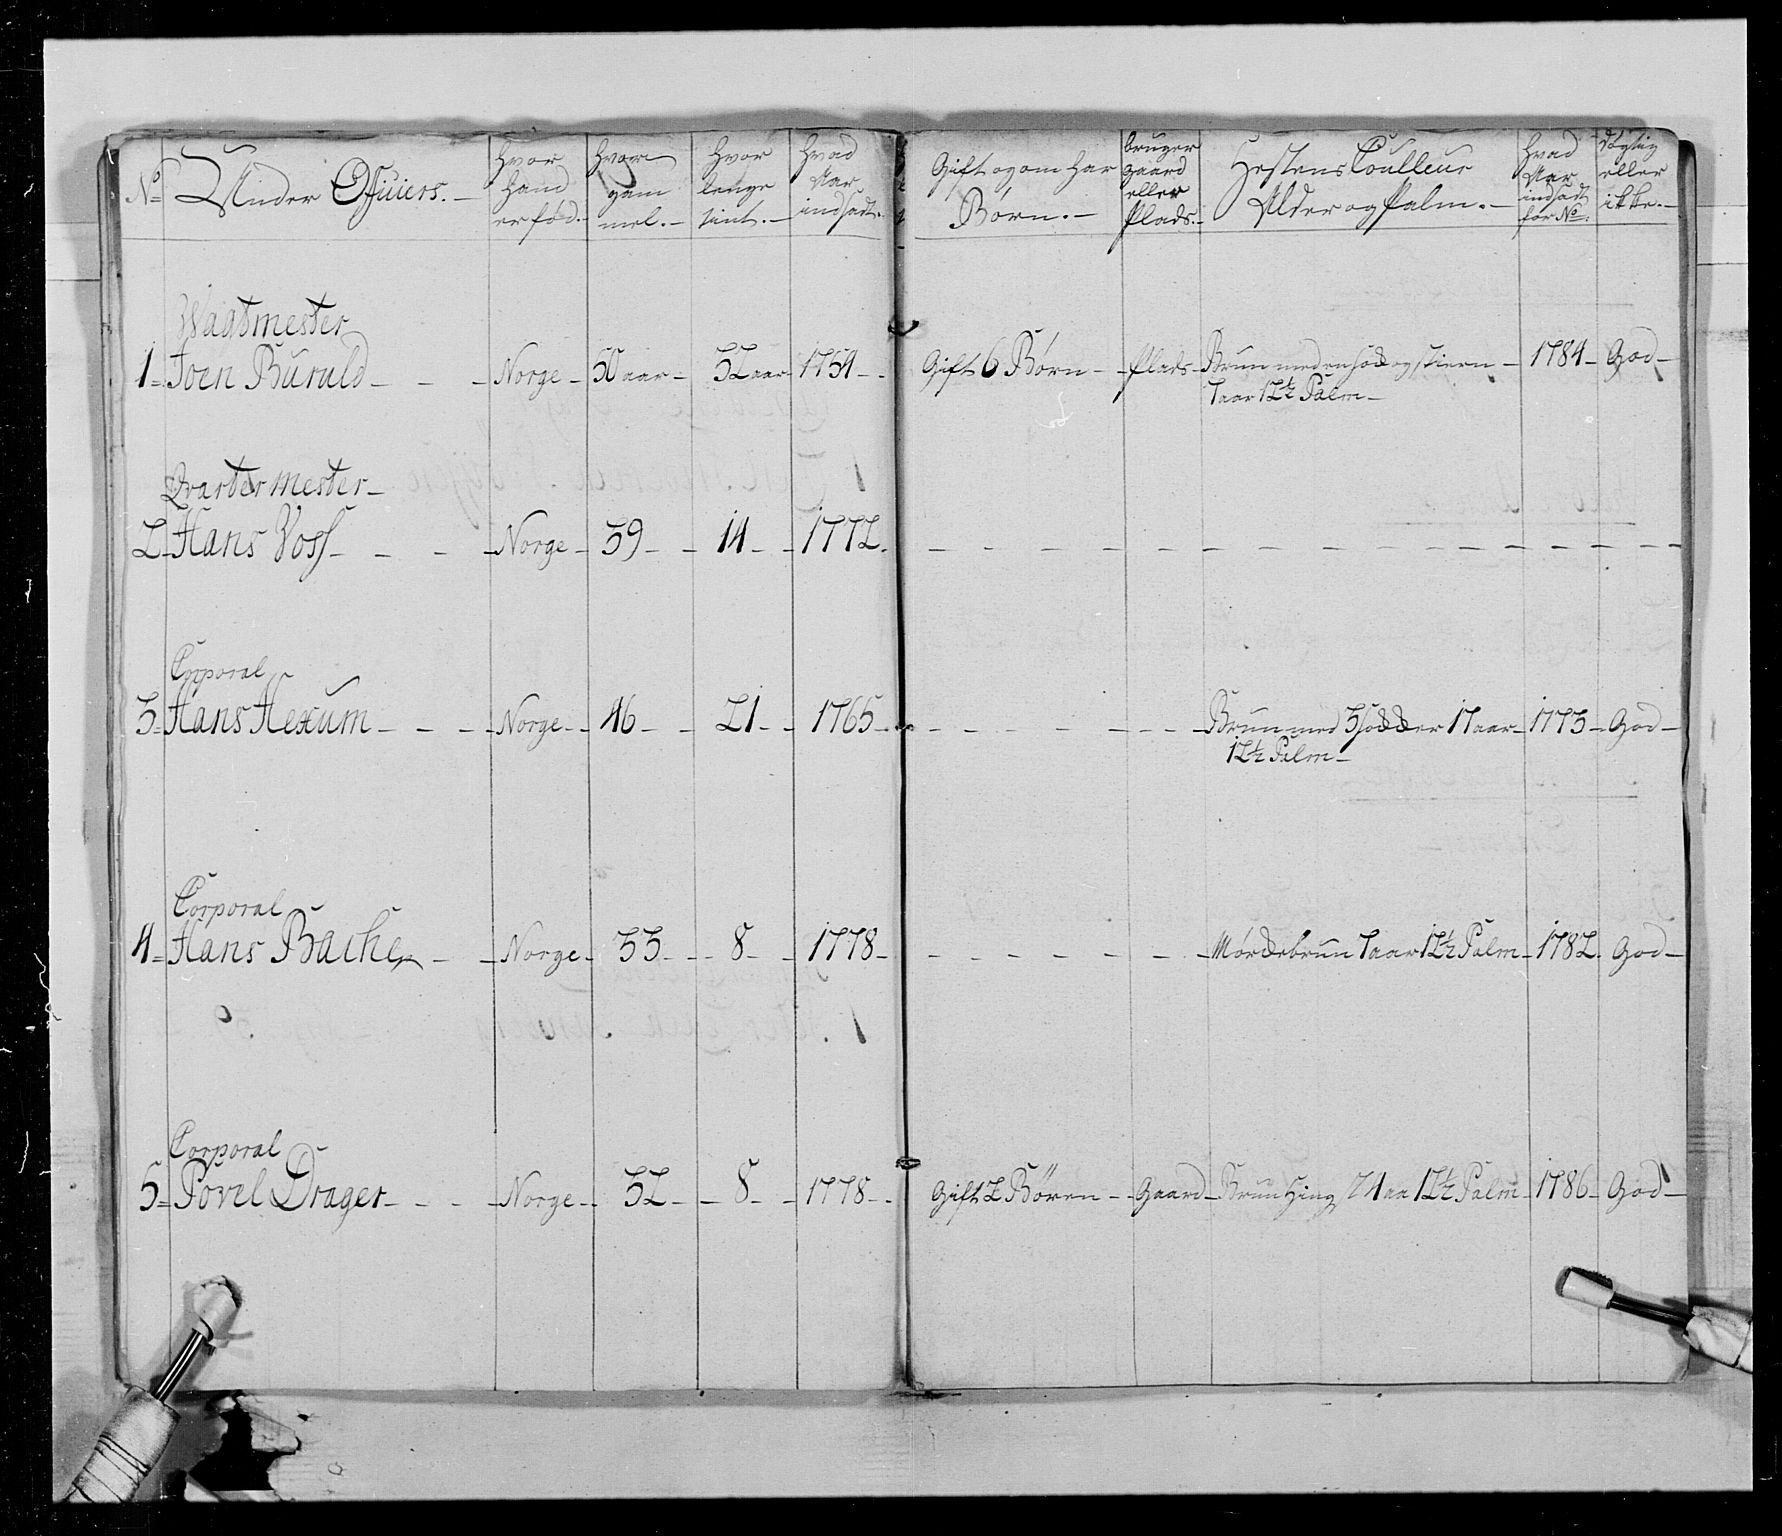 No Under Officiers. hvor hand er fød. hvor gam mel. hvor lenge tient. hvad Aar indsadt. Gift og om har Børn. bruger gaard eller Plads. Hestens Coulleur Alder og Palm. hvad Aar indsadt for No dygtig eller ikke.
Wagtmester
1 Joen Buruld Norge 50 aar 32 aar 1754 Gift 6 Børn plads Brun med en sod og stiern 1784 God
7 aar 12½ Palm
Qvartermester
2 Hans Voss Norge 39 14 1772
Corporal
3 Hans Hexum Norge 46 21 1765 Brun med 3 sodder 17 aar 1773 God
12½ Palm
Corporal
4 Hans Bache Norge 33 8 1778 Mørdebrun 7 aar 12½ Palm 1782 God
Corporal
5 Povel Drager Norge 32 8 1778 Gift 2 Børen Gaard Brun Hing 4 aa 12½ Palm 1786 God